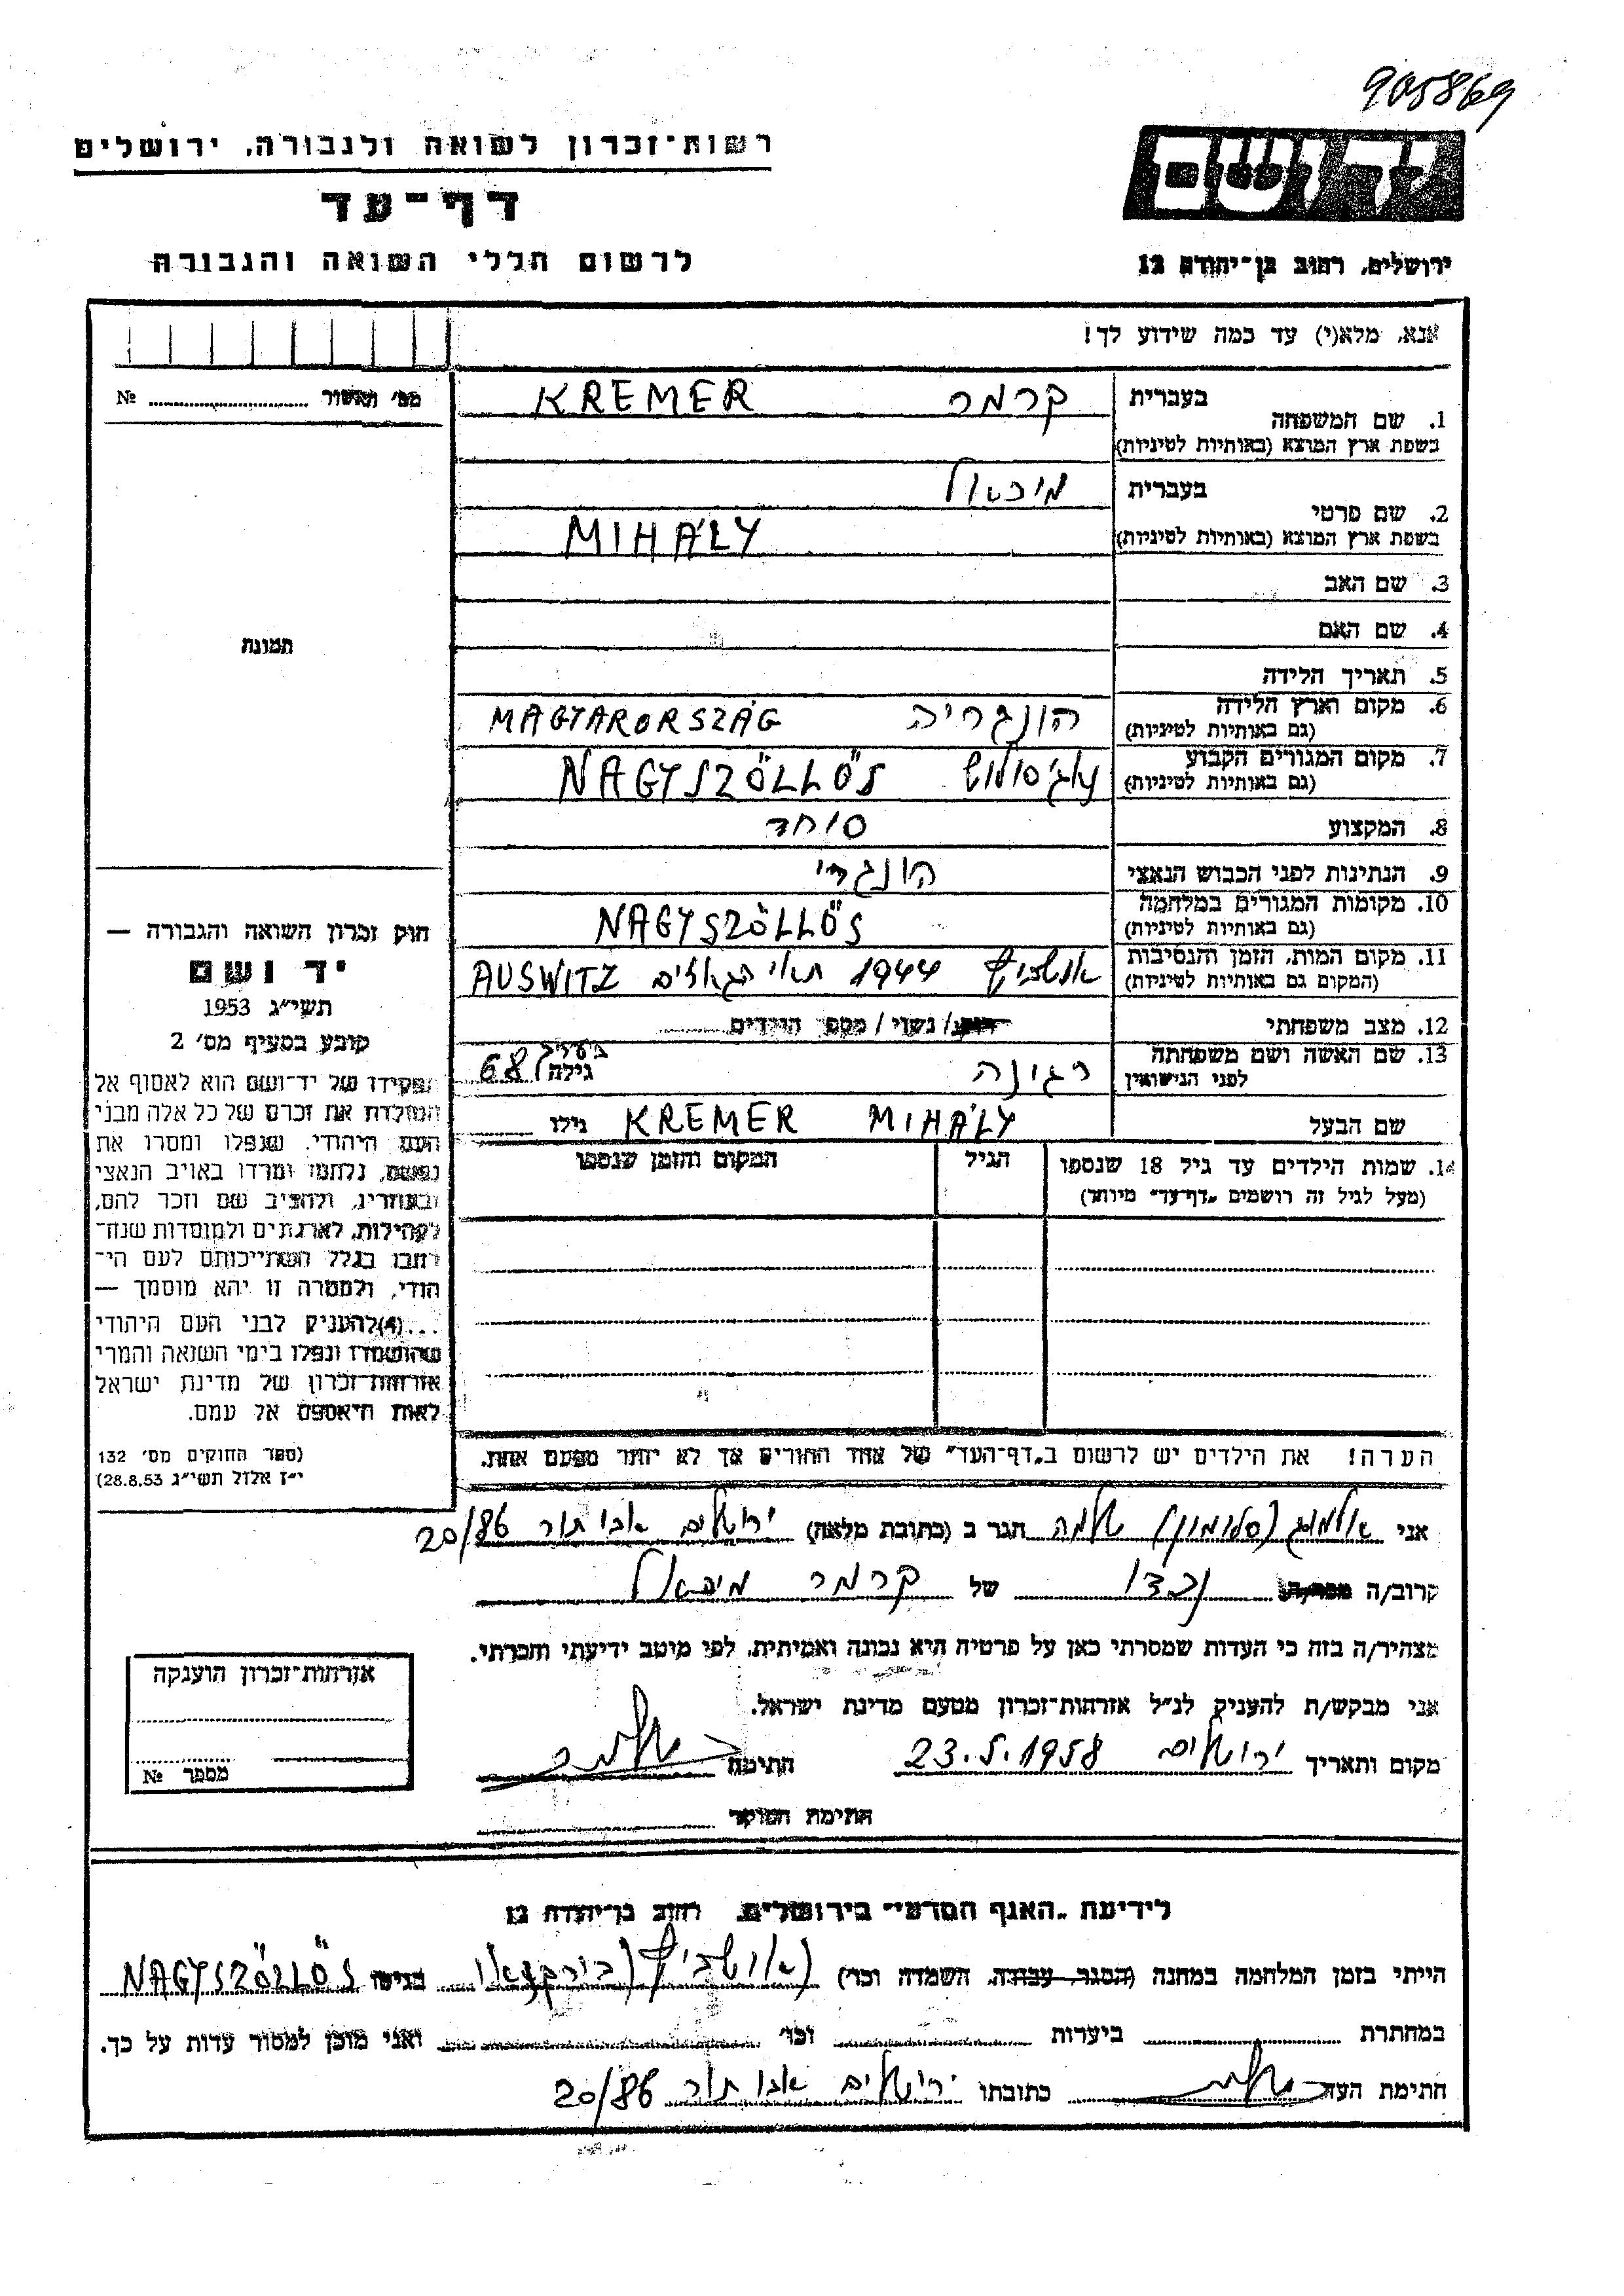 905869
יד ושם
ירושלים, רחוב בן־יהודה 12
רשות־זכרון לשואה ולגבורה, ירושלים
דף־עד
לרשום חללי השואה והגבורה
אנא, מלא(י) עד כמה שידוע לך!
מס' ותאשור № 
1. שם המשפחה בעברית קרמר KREMER
בשפת ארץ המוצא (באותיות לטיניות)
2. שם פרטי בעברית מיכאל
בשפת ארץ המוצא (באותיות לטיניות) MIHÁLY
3. שם האב
4. שם האם
5. תאריך הלידה
6. מקום וארץ הלידה הונגריה MAGYARORSZÁG
(גם באותיות לטיניות)
7. מקום המגורים הקבוע NAGYSZÖLLÖS
(גם באותיות לטיניות)
8. המקצוע סוחר
9. הנתינות לפני הכבוש הנאצי הונגרי
10. מקומות המגורים במלחמה NAGYSZÖLLÖS
(גם באותיות לטיניות)
11. מקום המות, הזמן והנסיבות אושביץ 1944 תאי הגאזים AUSWITZ
(המקום גם באותיות לטיניות)
12. מצב משפחתי רווק/ נשוי / מספר הילדים
13. שם האשה ושם משפחתה רגינה גילה 68
לפני הנישואין
שם הבעל MIHÁLY KREMER גילו
14. שמות הילדים עד גיל 18 שנספו הגיל המקום והזמן שנספו
(מעל לגיל זה רושמים "דף־עד" מיוחד)
הערה! את הילדים יש לרשום ב"דף־העד" של אחד ההורים אך לא יותר מפעם אחת.
תמונה
חוק זכרון השואה והגבורה —
יד ושם
תשי״ג 1953
קובע בסעיף מס' 2
תפקידו של יד־ושם הוא לאסוף אל
המולדת את זכרם של כל אלה מבני
העם היהודי, שנפלו ומסרו את
נפשם, נלחמו ומרדו באויב הנאצי
ובעוזריו, ולהציב שם וזכר להם,
לקהילות, לארגונים ולמוסדות שנח־
רבו בגלל השתייכותם לעם הי־
הודי, ולמטרה זו יהא מוסמך —
...(4)להעניק לבני העם היהודי
שהושמדו ונפלו בימי השואה והמרי
אזרחות־זכרון של מדינת ישראל
לאות היאספם אל עמם.
(ספר החוקים מס' 132
י״ז אלול תשי״ג 28.8.53)
אני אלמוג (סלומון) שלמה הגר ב (כתובת מלאה) ירושלים אבו תור 20/86
קרוב/ה מכר/ה נכדו של קרמר מיכאל
מצהיר/ה בזה כי העדות שמסרתי כאן על פרטיה היא נכונה ואמיתית, לפי מיטב ידיעתי והכרתי.
אני מבקש/ת להעניק לנ״ל אזרחות־זכרון מטעם מדינת ישראל.
מקום ותאריך ירושלים 23.5.1958 חתימה
חתימת הפוקד
אזרחות־זכרון הוענקה
מספר №
לידיעת "האגף המדעי" בירושלים, רחוב בן־יהודה 12
הייתי בזמן המלחמה במחנה (הסגר, עבודה, השמדה וכו') אושביץ (בירקנאו) בגיטו NAGYSZÖLLÖS
במחתרת ביערות וכו' ואני מוכן למסור עדות על כך.
חתימת העד כתובתו ירושלים אבו תור 20/86